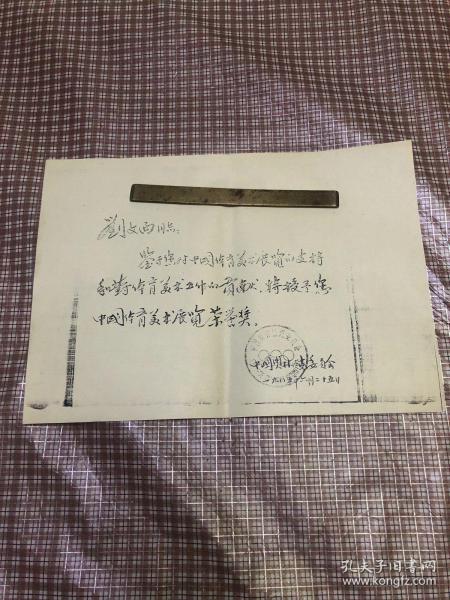 劉文西同志:
鉴于您对中國体育美术展览的支持
和對体育美术工作的贡献,特授予您
中國体育美术展览荣誉奖。
中國奥林匹克委员会
一九八五年六月二十五日
孔夫子旧书网
www.kongfz.com